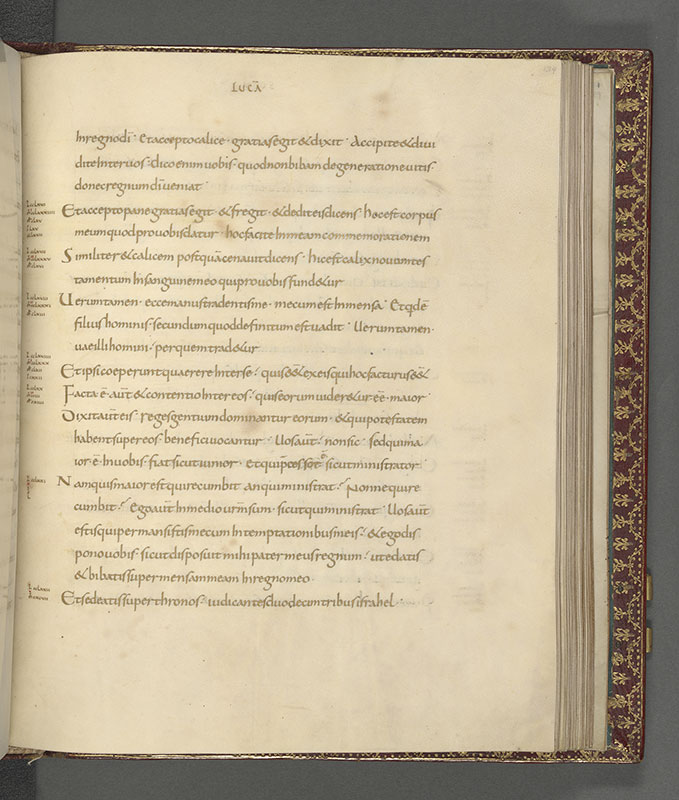 LUCĀ
Inregnodī· Etacceptocalice· gratiasegit &dixit· Accipite&diui
diteInteruos· dicoenimuobis· quodnonbibam degenerationeuitis
donecregnum dīueniat·
Etacceptopane gratiasegit· &fregit· &dediteisdicens hocest corpus
meumquodprouobisdatur· hocfacite Inmeam commemorationem
Similiter&calicem postquācenauitdicens· hicestcalixnouumtes
tamentum Insanguinemeo quiprouobisfund&ur
Ueruntamen· eccemanustradentisme· mecumest Inmensa· Etqdē
filiushominis· secundumquoddefinitumestuadit· Ueruntamen·
uaeillihomini· perquemtrad&ur
Etipsicoeperuntquaerere Interse· quisess& exeisquihocfacturusess&
Facta ē· aut̄&contentio Intereos· quiseorumuider&ur eē· maior
Dixitaut̄eis· regesgentiumdominantur eorum· &quipotestatem
habentsupereos· beneficiuocantur· Uosaut̄· nonsic· sedquima
ior ē· Inuobis· fiatsicutiunior· Etquip̄cessor ē sicutministrator·
Namquismaiorest quirecumbit· anquiministrat· Nonnequire
cumbit· Egoaut̄ Inmedio ur̄msum· sicutquiministrat· Uosaut̄
estisquipermansistismecum Intemptationibusmeis· &egodis
ponouobis· sicutdisposuit mihipatermeusregnum· utedatis
&bibatissupermensammeam Inregnomeo·
Etsedeatissuperthronos· iudicantesduodecimtribusisrahel·